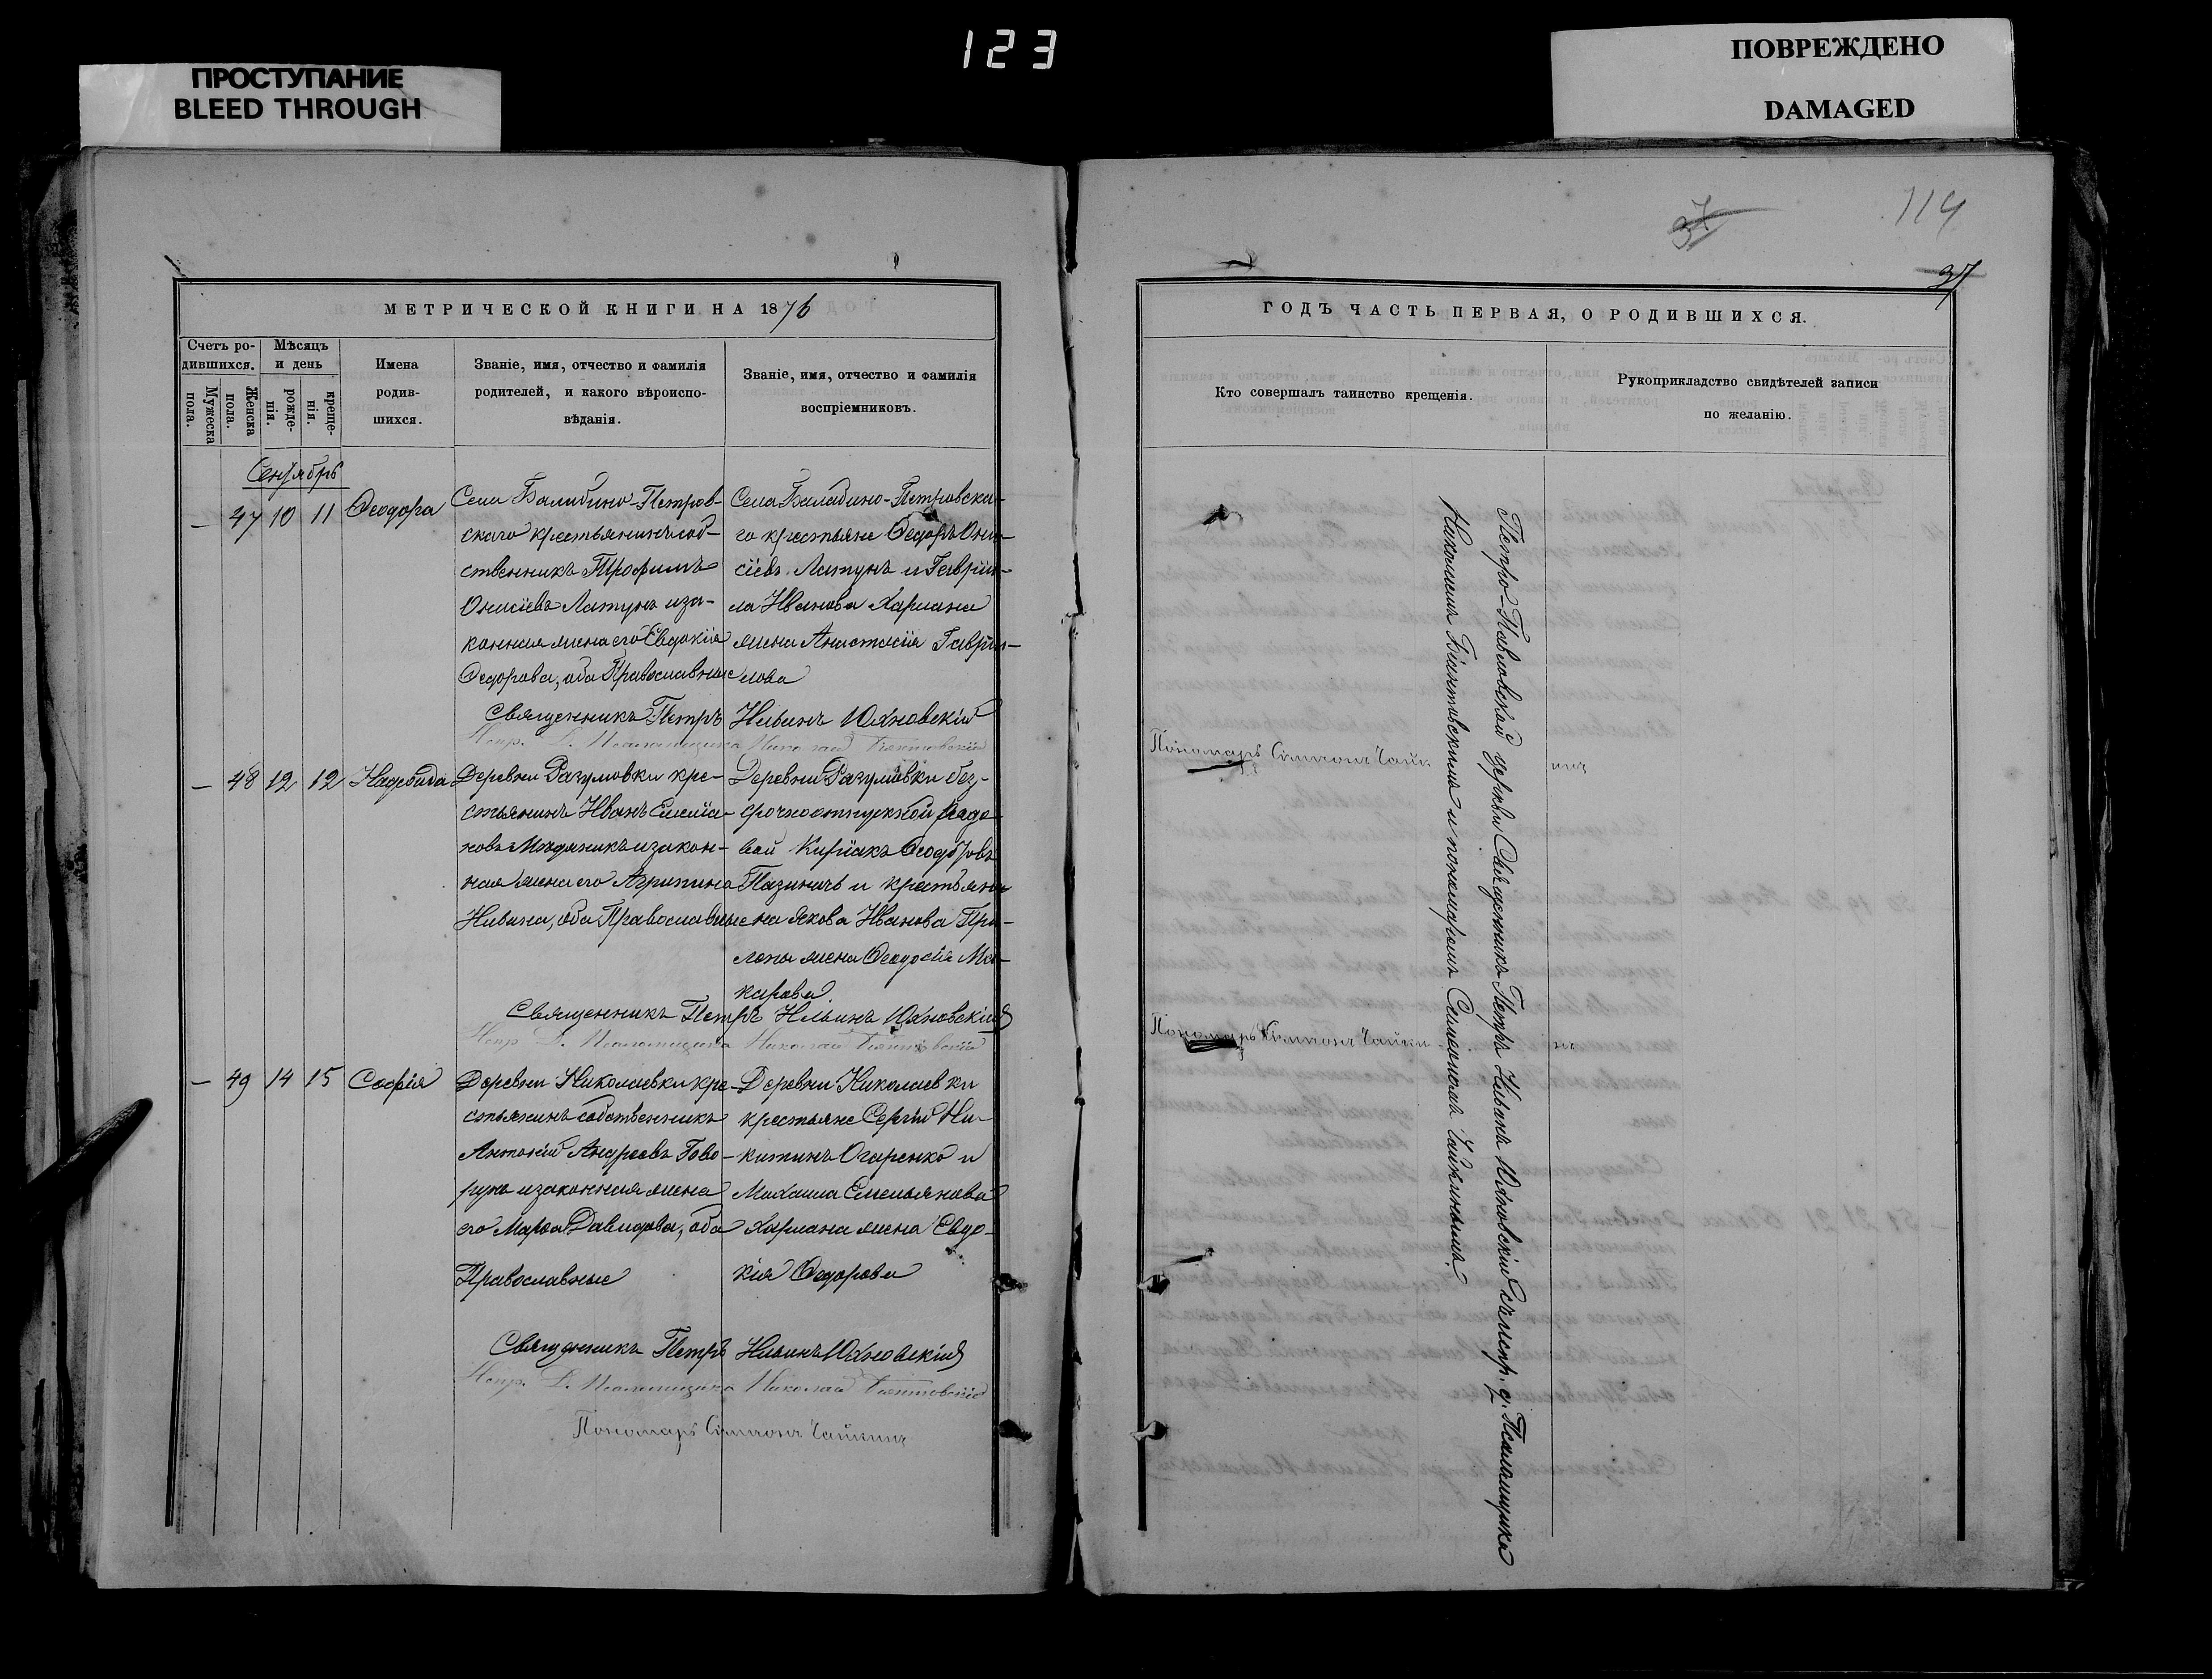 123
ПРОСТУПАНИЕ
BLEED THROUGH
ПОВРЕЖДЕНО
DAMAGED
37
114
37
МЕТРИЧЕСКОЙ КНИГИ НА 1876
Счетъ ро-
дившихся.
Мужеска
пола.
Женска
пола.
Мѣсяцъ
и день
рожде-
нія.
креще-
нія.
Имена
родив-
шихся.
Званіе, имя, отчество и фамилія
родителей, и какого вѣроиспо-
вѣданія.
Званіе, имя, отчество и фамилія
воспріемниковъ.
Сентябрь
— 47 10 11 Ѳеодора
Села Балабино-Петров-
скаго крестьянинъ соб-
ственникъ Трофимъ
Онисіевъ Латунъ и за-
конная жена его Евдокія
Ѳедорова, оба Православные
Села Балабино-Петровска-
го крестьяне Ѳедоръ Они-
сіевъ Латунъ и Гаврии-
ла Иванова Харлана
жена Анастасія Гаври-
лова
Священникъ Петръ Ильинъ Юхновскій
Испр. д. Псаломщика Николай Біянтовскій
Пономарь Симеонъ Чайкинъ
— 48 12 12 Надежда
Деревни Разумовки кре-
стьянинъ Иванъ Емелія-
новъ и закон-
ная жена его Агрипина
Ильина, оба Православные
Деревни Разумовки без-
срочноотпускной рядо-
вой Киріакъ Ѳеодоровъ
Пазиничъ и крестьяни-
на Якова Иванова При-
лепы жена Ѳеодосія Ма-
карова.
Священникъ Петръ Ильинъ Юхновскій
Испр. д. Псаломщика Николай Біянтовскій
Пономарь Симеонъ Чайкинъ
— 49 14 15 Софія
Деревни Николаевки кре-
стьянинъ собственникъ
Антоній Андреевъ Гово-
рунъ и законная жена
его Марѳа Давидова, оба
Православные
Деревни Николаевки
крестьяне Сергій Ни-
китинъ Огаренко и
Михаила Емельянова
Харлана жена Евдо-
кія Ѳедорова
Священникъ Петръ Ильинъ Юхновскій
Испр. д. Псаломщика Николай Біянтовскій
Пономарь Симеонъ Чайкинъ
ГОДЪ ЧАСТЬ ПЕРВАЯ, О РОДИВШИХСЯ.
Кто совершалъ таинство крещенія.
Рукоприкладство свидѣтелей записи
по желанію.
Петро-Павловской церкви Священникъ Петръ Ильинъ Юхновскій съ испр. д. Псаломщика
Николаемъ Біянтовскимъ и пономаремъ Симеономъ Чайкинымъ.